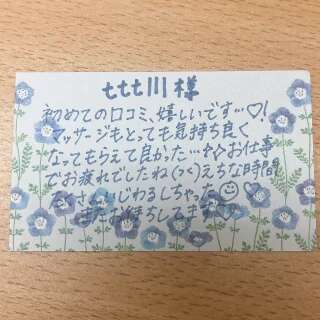 ttt川様
初めての口コミ、嬉しいです…♡!
マッサージもとっても気持ち良く
なってもらえて良かった…☆お仕事
でお疲れでしたね(>_<)えちな時間
いじわるしちゃった☺♡
またお待ちしてます